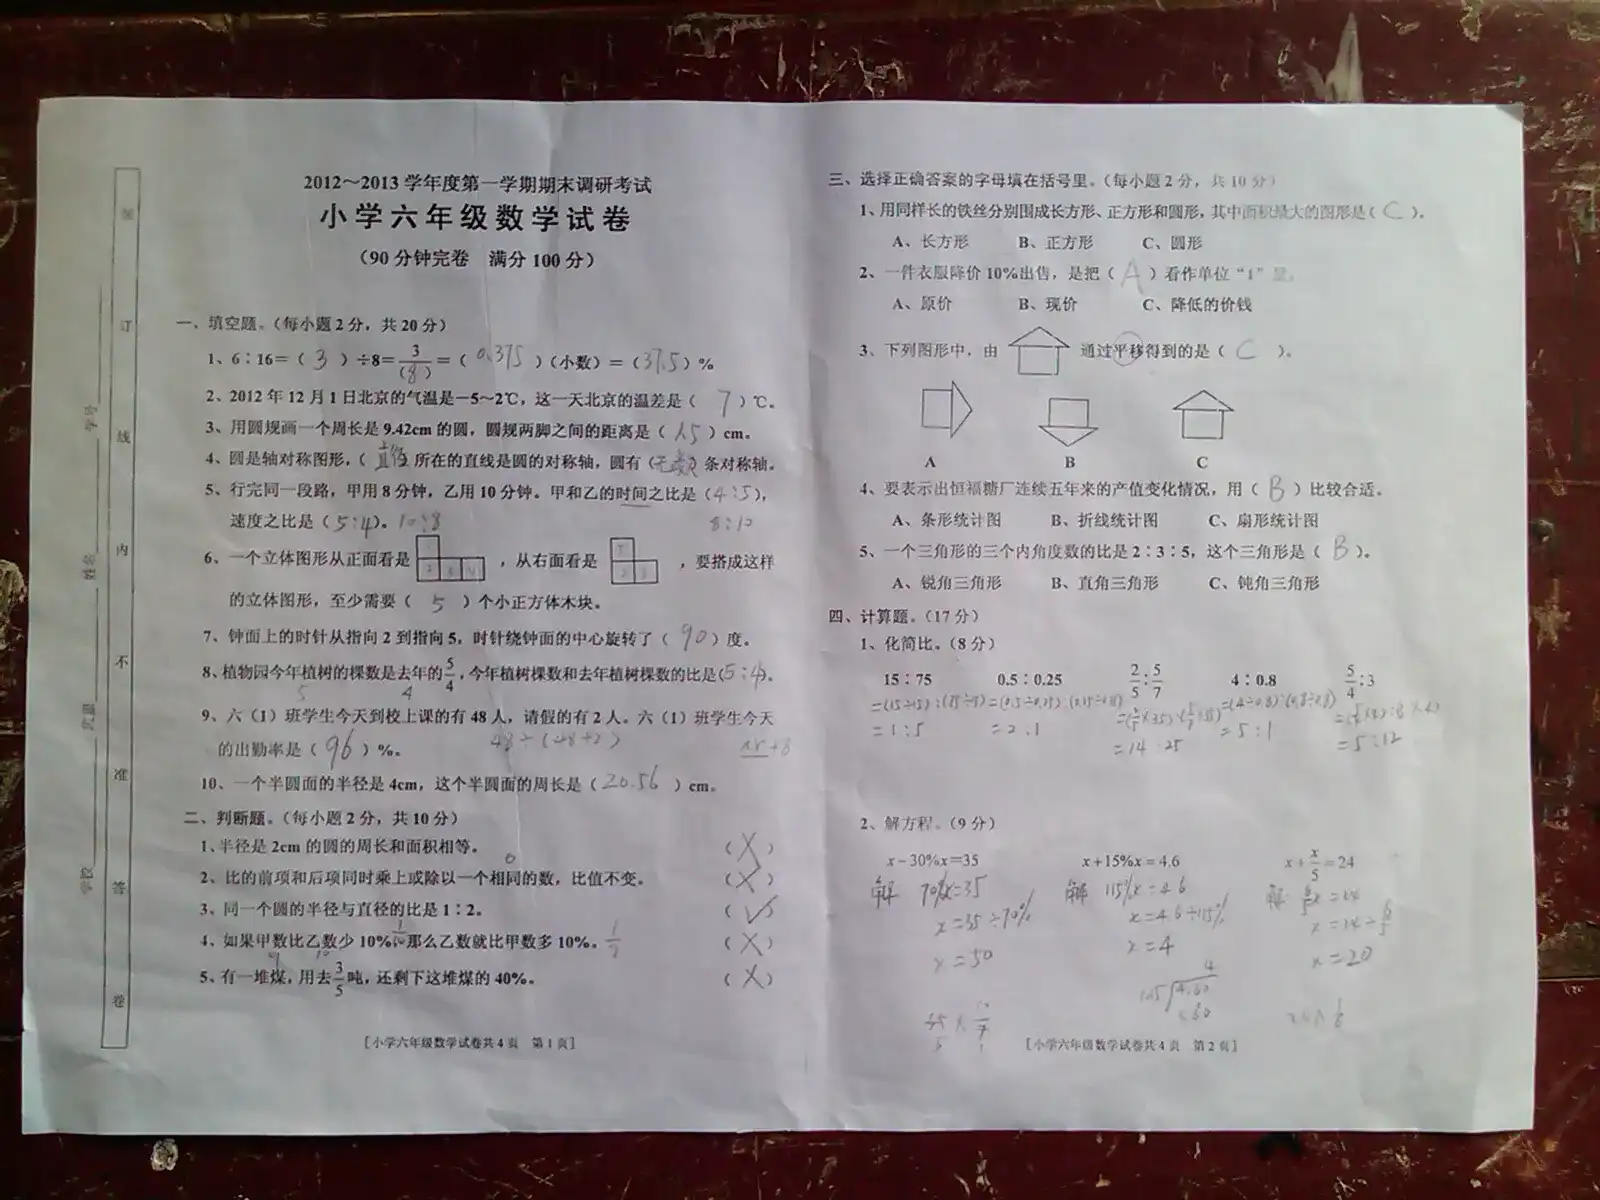 2012～2013学年度第一学期期末调研考试
小学六年级数学试卷
（90分钟完卷 满分100分）
一、填空题。（每小题2分，共20分）
1、6∶16=（ 3 ）÷8=3/(8)=（ 0.375 ）（小数）=（37.5）%
2、2012年12月1日北京的气温是－5～2℃，这一天北京的温差是（ 7 ）℃。
3、用圆规画一个周长是9.42cm的圆，圆规两脚之间的距离是（ 1.5 ）cm。
4、圆是轴对称图形，（直径 所在的直线是圆的对称轴，圆有（无数）条对称轴。
5、行完同一段路，甲用8分钟，乙用10分钟。甲和乙的时间之比是（4∶5），
速度之比是（5∶4）。10∶8 8∶10
6、一个立体图形从正面看是 ，从右面看是 ，要搭成这样
的立体图形，至少需要（ 5 ）个小正方体木块。
7、钟面上的时针从指向2到指向5，时针绕钟面的中心旋转了（ 90 ）度。
8、植物园今年植树的棵数是去年的5/4，今年植树棵数和去年植树棵数的比是（5∶4）。
5 4
9、六（1）班学生今天到校上课的有48人，请假的有2人。六（1）班学生今天
的出勤率是（ 96 ）%。 48÷(48+2)
10、一个半圆面的半径是4cm，这个半圆面的周长是（ 20.56 ）cm。
二、判断题。（每小题2分，共10分）
1、半径是2cm的圆的周长和面积相等。 （ X ）
0
2、比的前项和后项同时乘上或除以一个相同的数，比值不变。 （ X ）
3、同一个圆的半径与直径的比是1∶2。 （ √ ）
4、如果甲数比乙数少10%，那么乙数就比甲数多10%。 1/9 （ X ）
5、有一堆煤，用去3/5吨，还剩下这堆煤的40%。 （ X ）
［小学六年级数学试卷共4页 第1页］
学号
姓名
班级
学校
装
订
线
内
不
准
答
卷
三、选择正确答案的字母填在括号里。（每小题2分，共10分）
1、用同样长的铁丝分别围成长方形、正方形和圆形，其中面积最大的图形是（ C ）。
A、长方形 B、正方形 C、圆形
2、一件衣服降价10%出售，是把（ A ）看作单位“1”量。
A、原价 B、现价 C、降低的价钱
3、下列图形中，由 通过平移得到的是（ C ）。
A B C
4、要表示出恒福糖厂连续五年来的产值变化情况，用（ B ）比较合适。
A、条形统计图 B、折线统计图 C、扇形统计图
5、一个三角形的三个内角度数的比是2∶3∶5，这个三角形是（ B ）。
A、锐角三角形 B、直角三角形 C、钝角三角形
四、计算题。（17分）
1、化简比。（8分）
15∶75 0.5∶0.25 2/5∶5/7 4∶0.8 5/4∶3
=(15÷15)∶(75÷15) =(0.5÷0.25)∶(0.25÷0.25) =(2/5×35)∶(5/7×35) =(4÷0.8)∶(0.8÷0.8)
=1∶5 =2∶1 =14∶25 =5∶1 =5∶12
2、解方程。（9分）
x－30%x=35 x+15%x=4.6 x+x/5=24
解 70%x=35 解 115%x=4.6 解 6/5x=24
x=35÷70% x=4.6÷115% x=24÷6/5
x=50 x=4 x=20
［小学六年级数学试卷共4页 第2页］